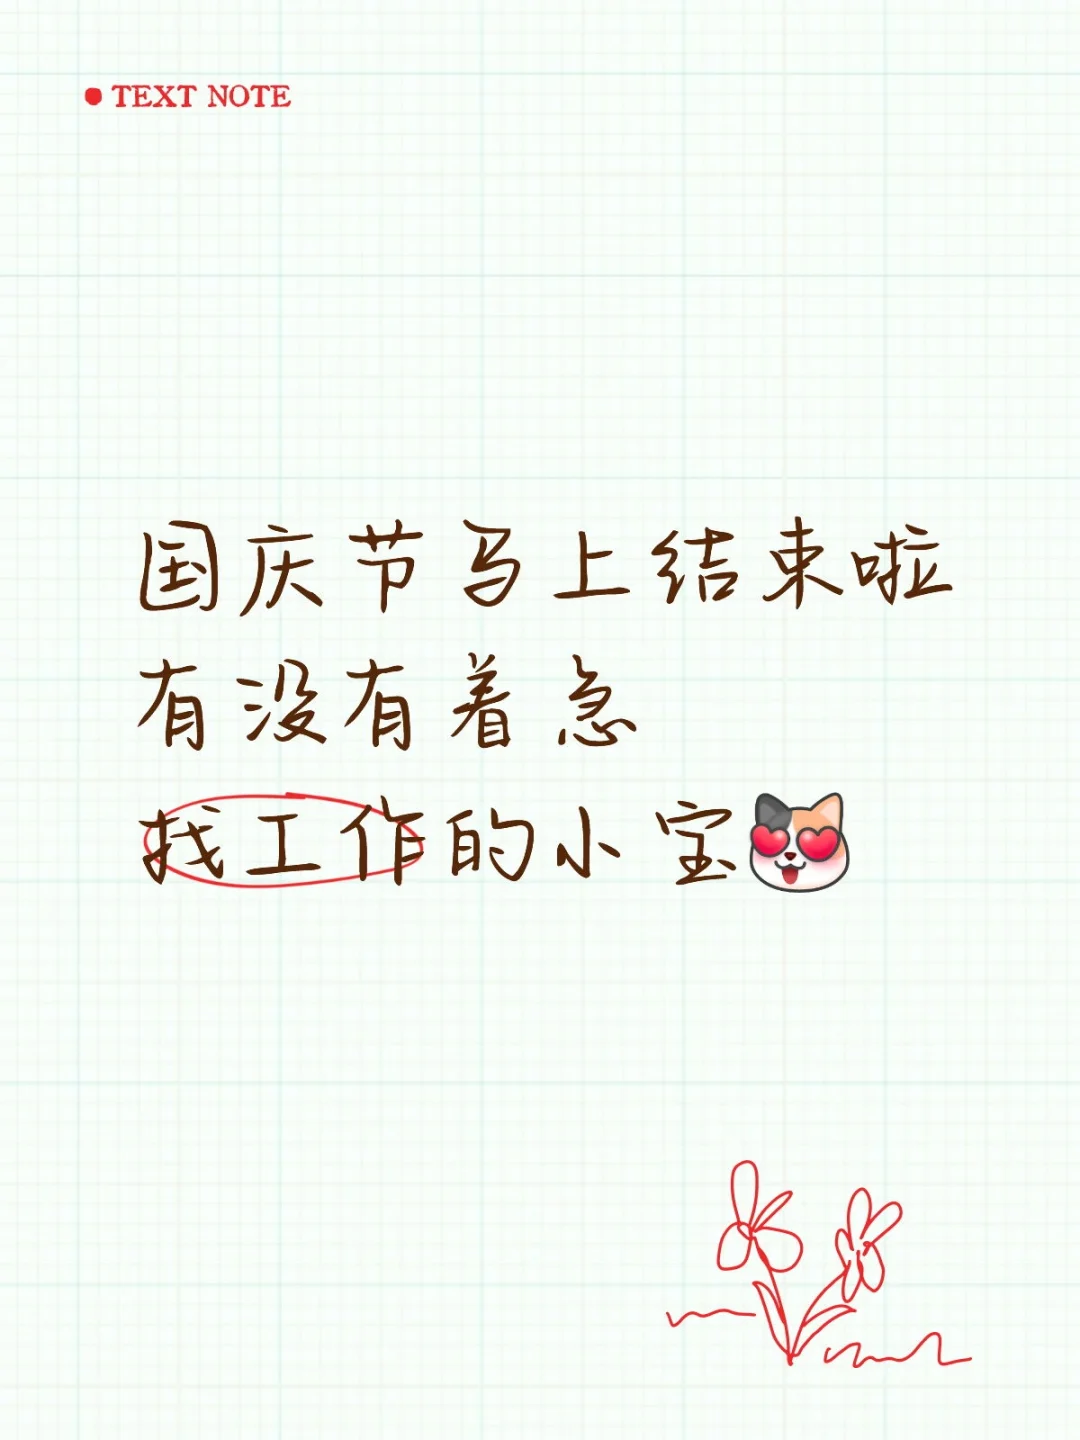 TEXT NOTE
国庆节马上结束啦
有没有着急
找工作的小宝